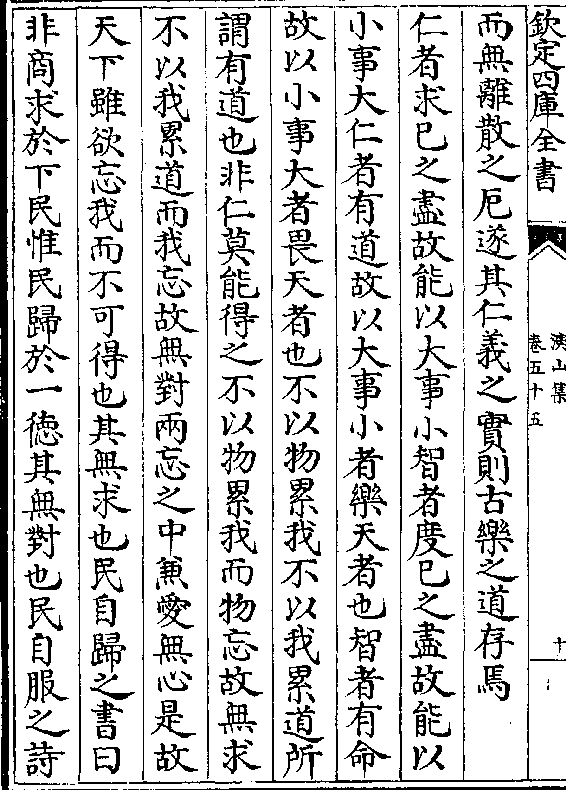 欽定四庫全書
演山集
卷五十五
十
而無離散之厄遂其仁義之實則古樂之道存焉
仁者求已之盡故能以大事小智者度已之盡故能以
小事大仁者有道故以大事小者樂天者也智者有命
故以小事大者畏天者也不以物累我不以我累道所
謂有道也非仁莫能得之不以物累我而物忘故無求
不以我累道而我忘故無對兩忘之中兼愛無心是故
天下雖欲忘我而不可得也其無求也民自歸之書曰
非商求於下民惟民歸於一徳其無對也民自服之詩